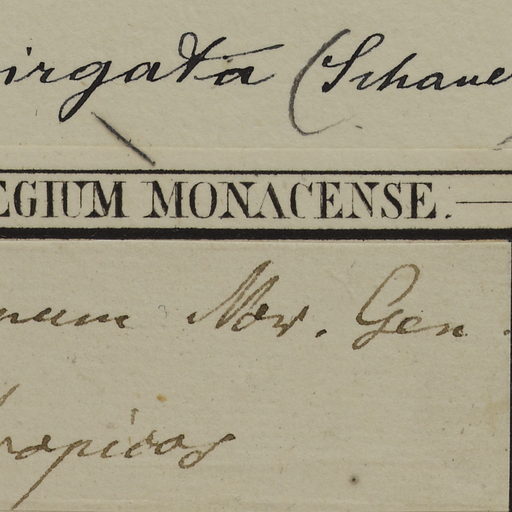 irgata (Schauer
EGIUM MONACENSE.
num Nov. Gen.
ropicos